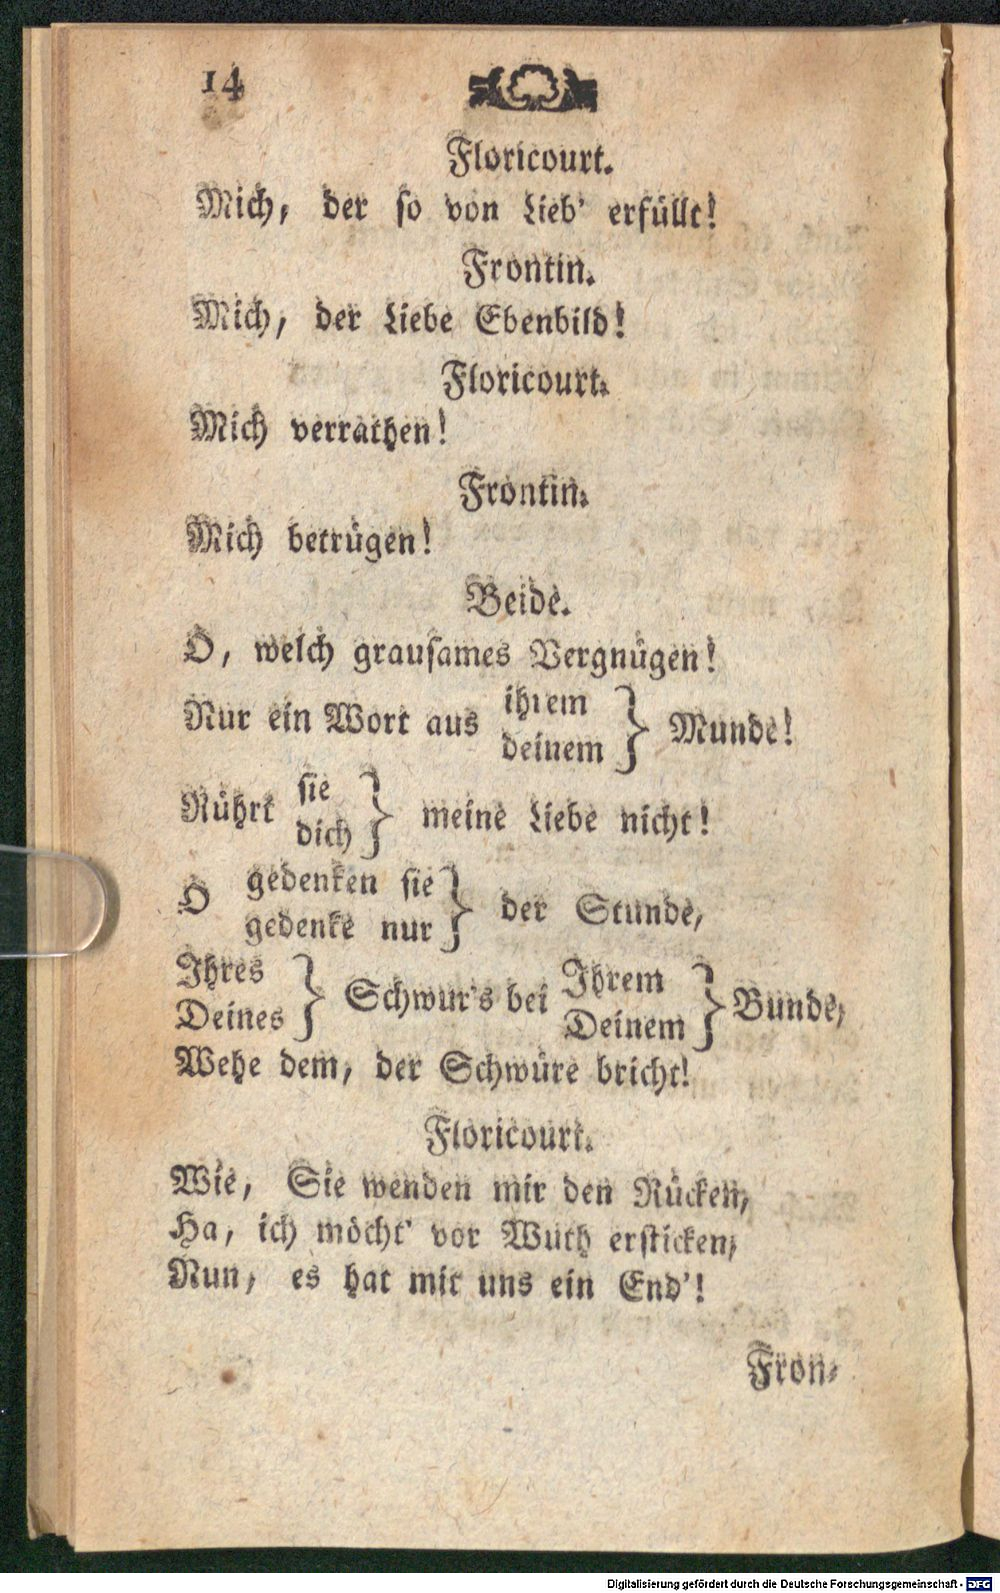 14
Floricourt.
Mich, der so von Lieb' erfüllt!
Frontin.
Mich, der Liebe Ebenbild!
Floricourt.
Mich verrathen!
Frontin.
Mich betrügen!
Beide.
O, welch grausames Vergnügen!
Nur ein Wort aus ihrem
deinem } Munde!
Rührt sie
dich } meine Liebe nicht!
O gedenken sie
gedenke nur } der Stunde,
Ihres
Deines } Schwur's bei Ihrem
Deinem } Bunde,
Wehe dem, der Schwüre bricht!
Floricourt.
Wie, Sie wenden mir den Rücken,
Ha, ich möcht' vor Wuth ersticken,
Nun, es hat mit uns ein End'!
Fron-
Digitalisierung gefördert durch die Deutsche Forschungsgemeinschaft - DFG